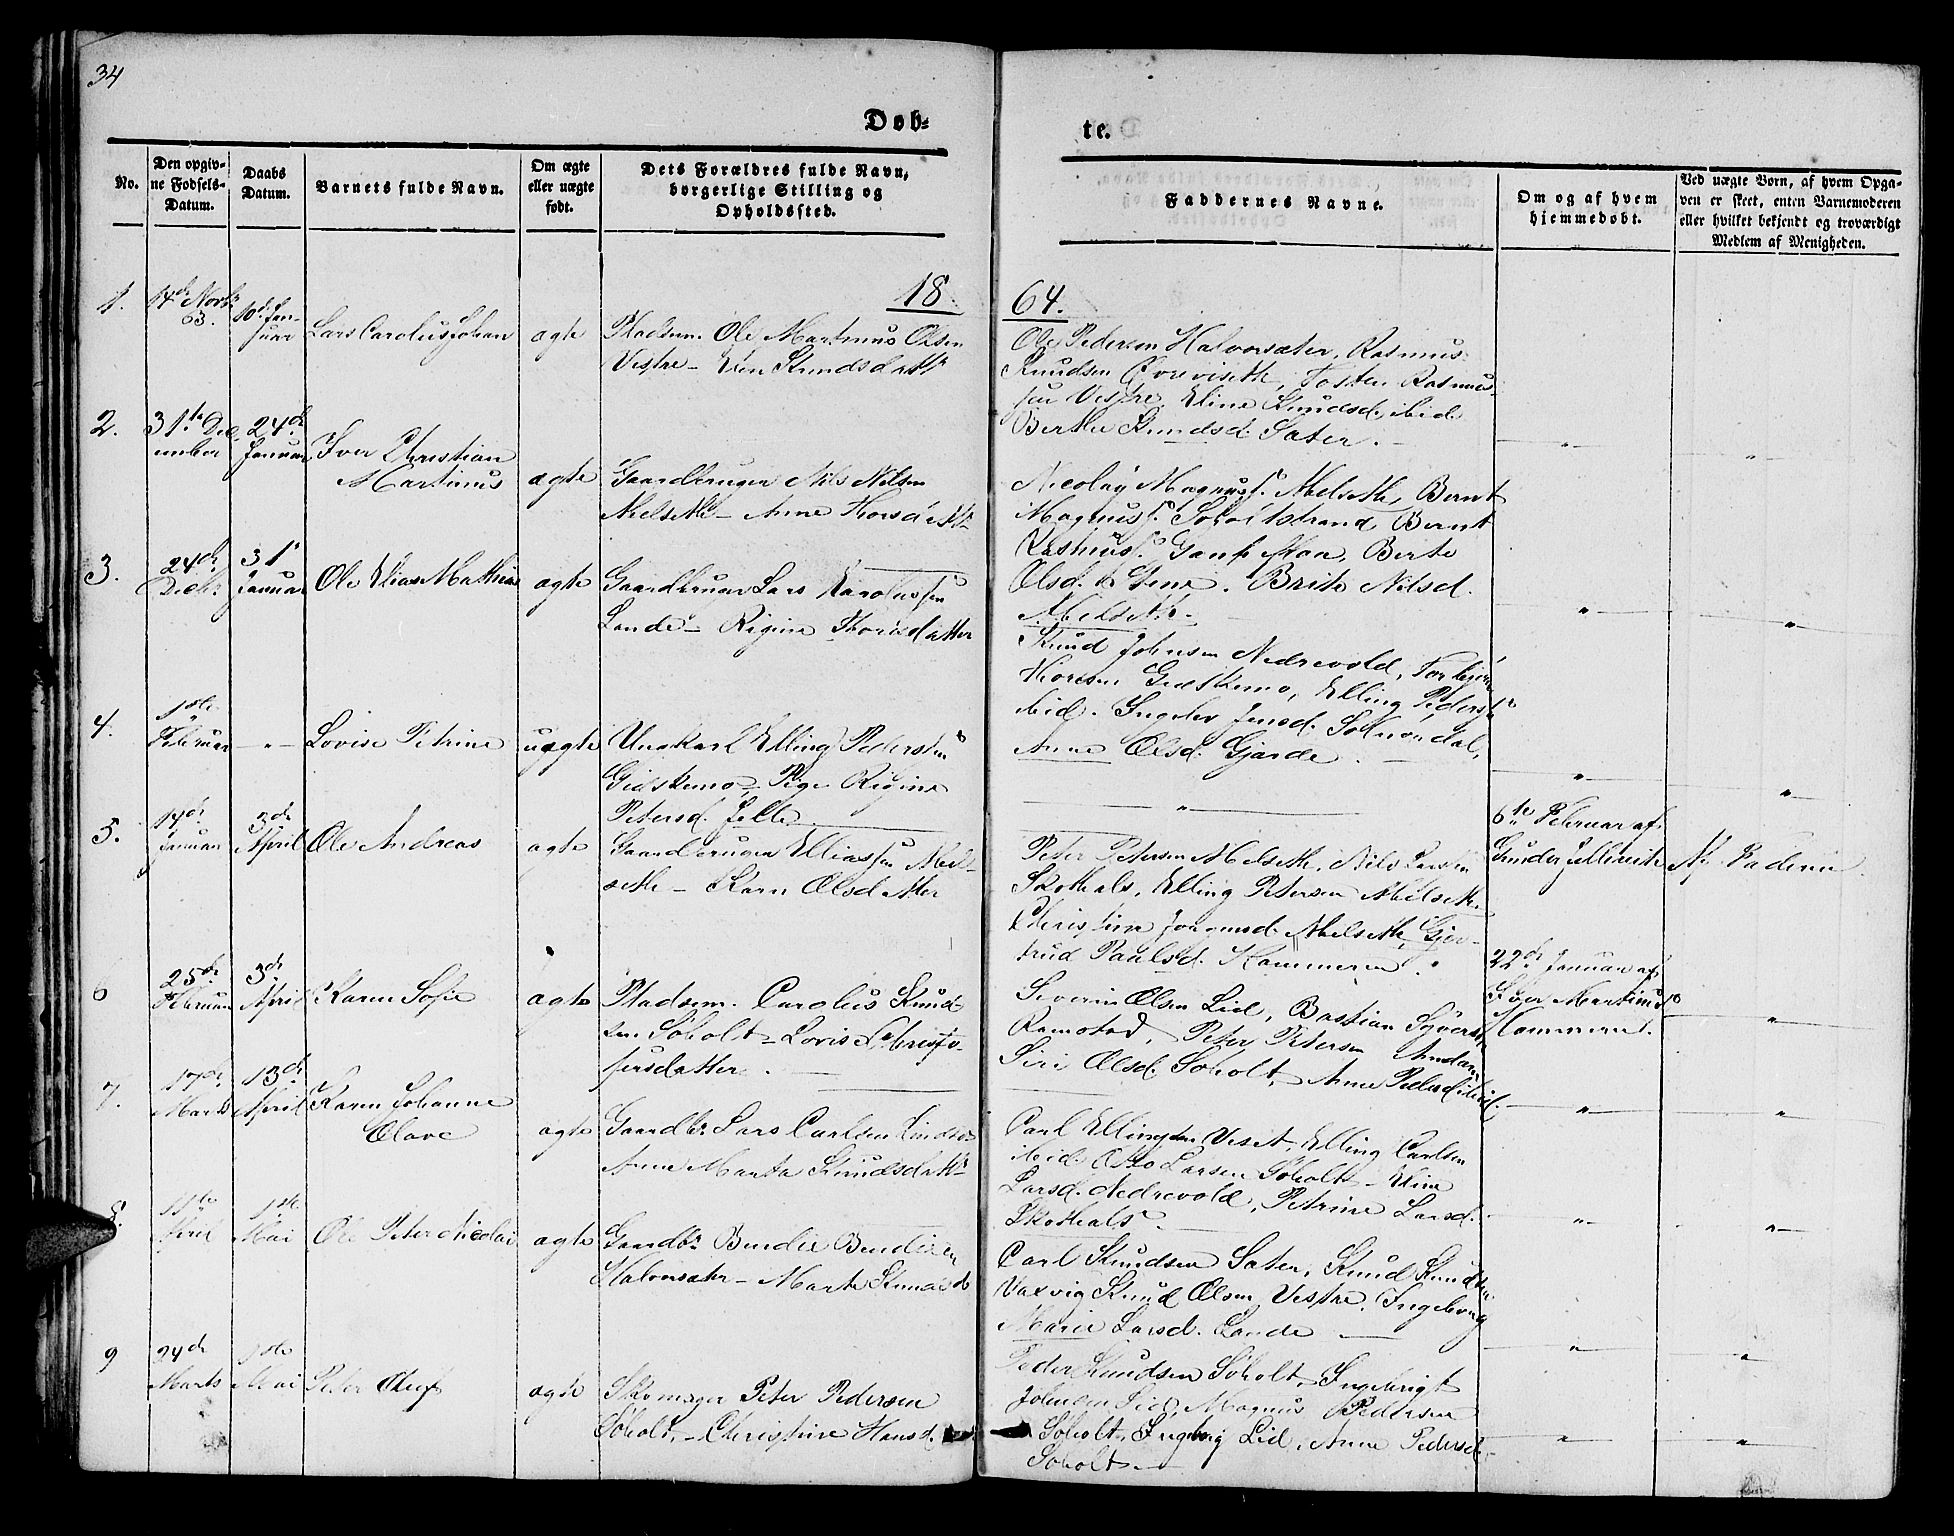 34
Døb-
te.
No.
Den opgiv-
ne Fødsels-
Datum.
Daabs
Datum.
Barnets fulde Navn.
Om ægte
eller uægte
født.
Dets Forældres fulde Navn,
borgerlige Stilling og
Opholdssted.
Faddernes Navne.
Om og af hvem
hjemmedøbt.
Ved uægte Børn, af hvem Opga-
ven er skeet, enten Barnemoderen
eller hvilket bekjendt og troværdigt
Medlem af Menigheden.
18
64.
1.
14de Novbr
63.
10de Jan-
uar
Lars Carolus Johan
ægte
Pladsm. Ole Martinus Olsen
Vestre - Knudsdattr
Ole Pedersen Halvorsæter, Rasmus
Knudsen Øvreviseth, Tosten Rasmus-
sen Vestre, Eline Knudsd. ibid.
Berthe Knudsd. Sæter. -
2.
31te Dec
ember
24de
Januar
Iver Christian
Martinus
ægte
Gaardbruger Nils Nilsen
Melseth - Anne
Nicolay Magnuss. Melseth, Bernt
Magnuss. Søholtstrand, Bernt
Rasmuss. Berte
Olsd. Brite Nilsd.
Melseth. -
3.
24de
Decbr
31
Januar
Ole Elias Mathias
ægte
Gaardbruger Lars Karolussen
Lande - Rigine Thorsdatter
Knud Johnsen Nedrevold, Torbjørn
Thoresen Gidskemo, Elling Peders.
ibid. Ingebor Jensd.
Anne Olsd. Gjærde. -
4.
1ste
Februar
- " -
Lovise Petrine
uægte
Ungkarl Elling Pedersen
Gidskemo, Pige Rigine
Petersd. Jelle
"
6te Februar af
Gunder Jelleveite
Af Faderen.
5.
14de
Januar
3de
April
Ole Andreas
ægte
Gaardbruger Elias Mel-
seth - Karn Olsdatter
Peter Petersen Melseth, Nils Larsen
Skothals, Elling Petersen Melseth
Christine Melseth, Gjer-
trud Paulsd. Hammeren.
22de Januar af
Martinus
Hammeren.
6
25de
Februar
3de
April
Karen Sofie
ægte
Pladsem. Carolus Knud-
sen Søholt - Lovise Christo-
fersdatter. -
Severin Olsen Lid, Bastian Syvers.
Ramstad, Peter Petersen Amdam
Siri Olsd. Søholt, Anne Pedersd. ibid.
7.
17de
Marts
13de
April
Karen Johanne
Olave
ægte
Gaardbr Lars Carlsen
Anne Marta Knudsdattr
Carl Ellingsen Viset, Elling Carlsen
ibid. Larsen Søholt - Eline
Larsd. Nedrevold, Petrine Larsd.
Skothals. -
8.
11te
April
1ste
Mai
Ole Peter Nicolai
ægte
Gaardbr Bendix Bendixen
Halvorsætr - Marte Knudsd
Carl Knudsen Sæter, Knud Knudsen
Vaxvig Knud Olsen Vestre, Ingeborg
Marie Larsd. Lande -
9
24de
Marts
1ste
Mai
Peter Oluf
ægte
Skomager Peter Pedersen
Søholt, - Christine Hansd.
Peder Knudsen Søholt, Ingebrigt
Johnsen Lid, Magnus Pedersen
Søholt, Ingeborg Lid, Anne Pedersd.
Søholt. -